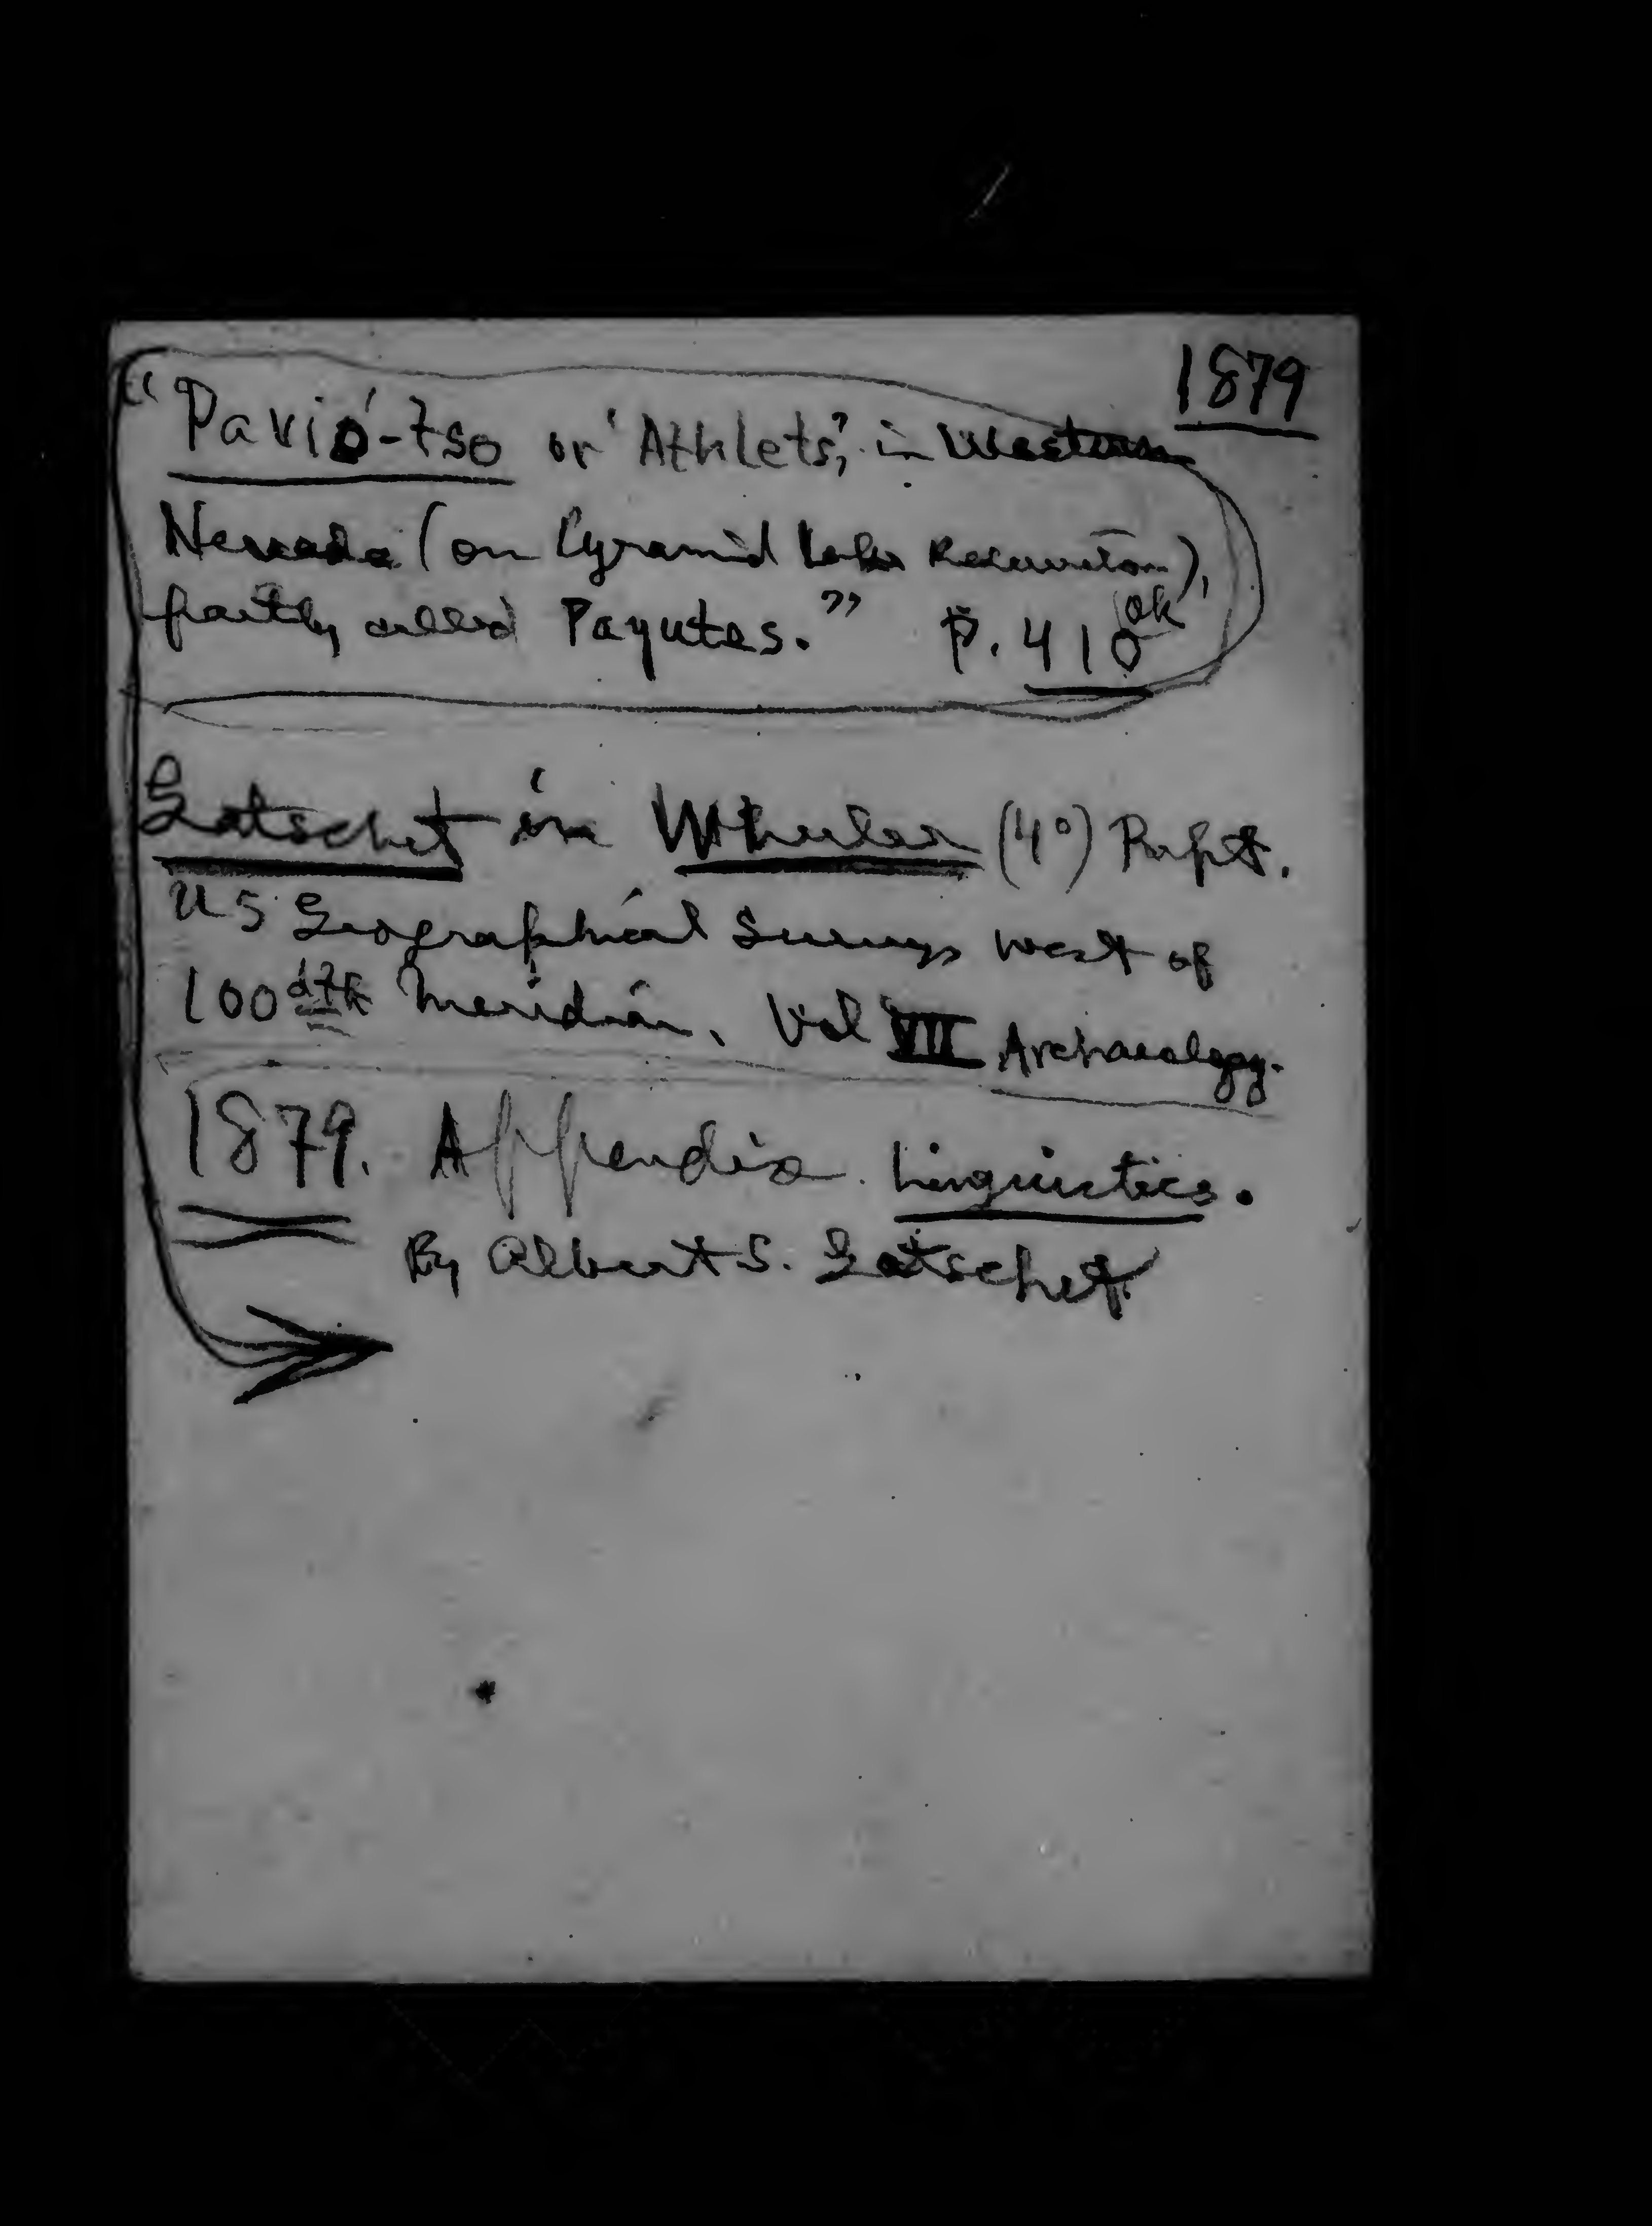 1879
"Pavió-tso or 'Athlets', in Western
Nevada (on Pyramid Lake Reservation),
partly called Payutes." p. 410 ok
Gatschet in Wheeler (4°) Rept.
US Geographical Surveys west of
100dth Meridian, Vol VII Archaeology.
1879. Appendix Linguistics.
By Albert S. Gatschet.